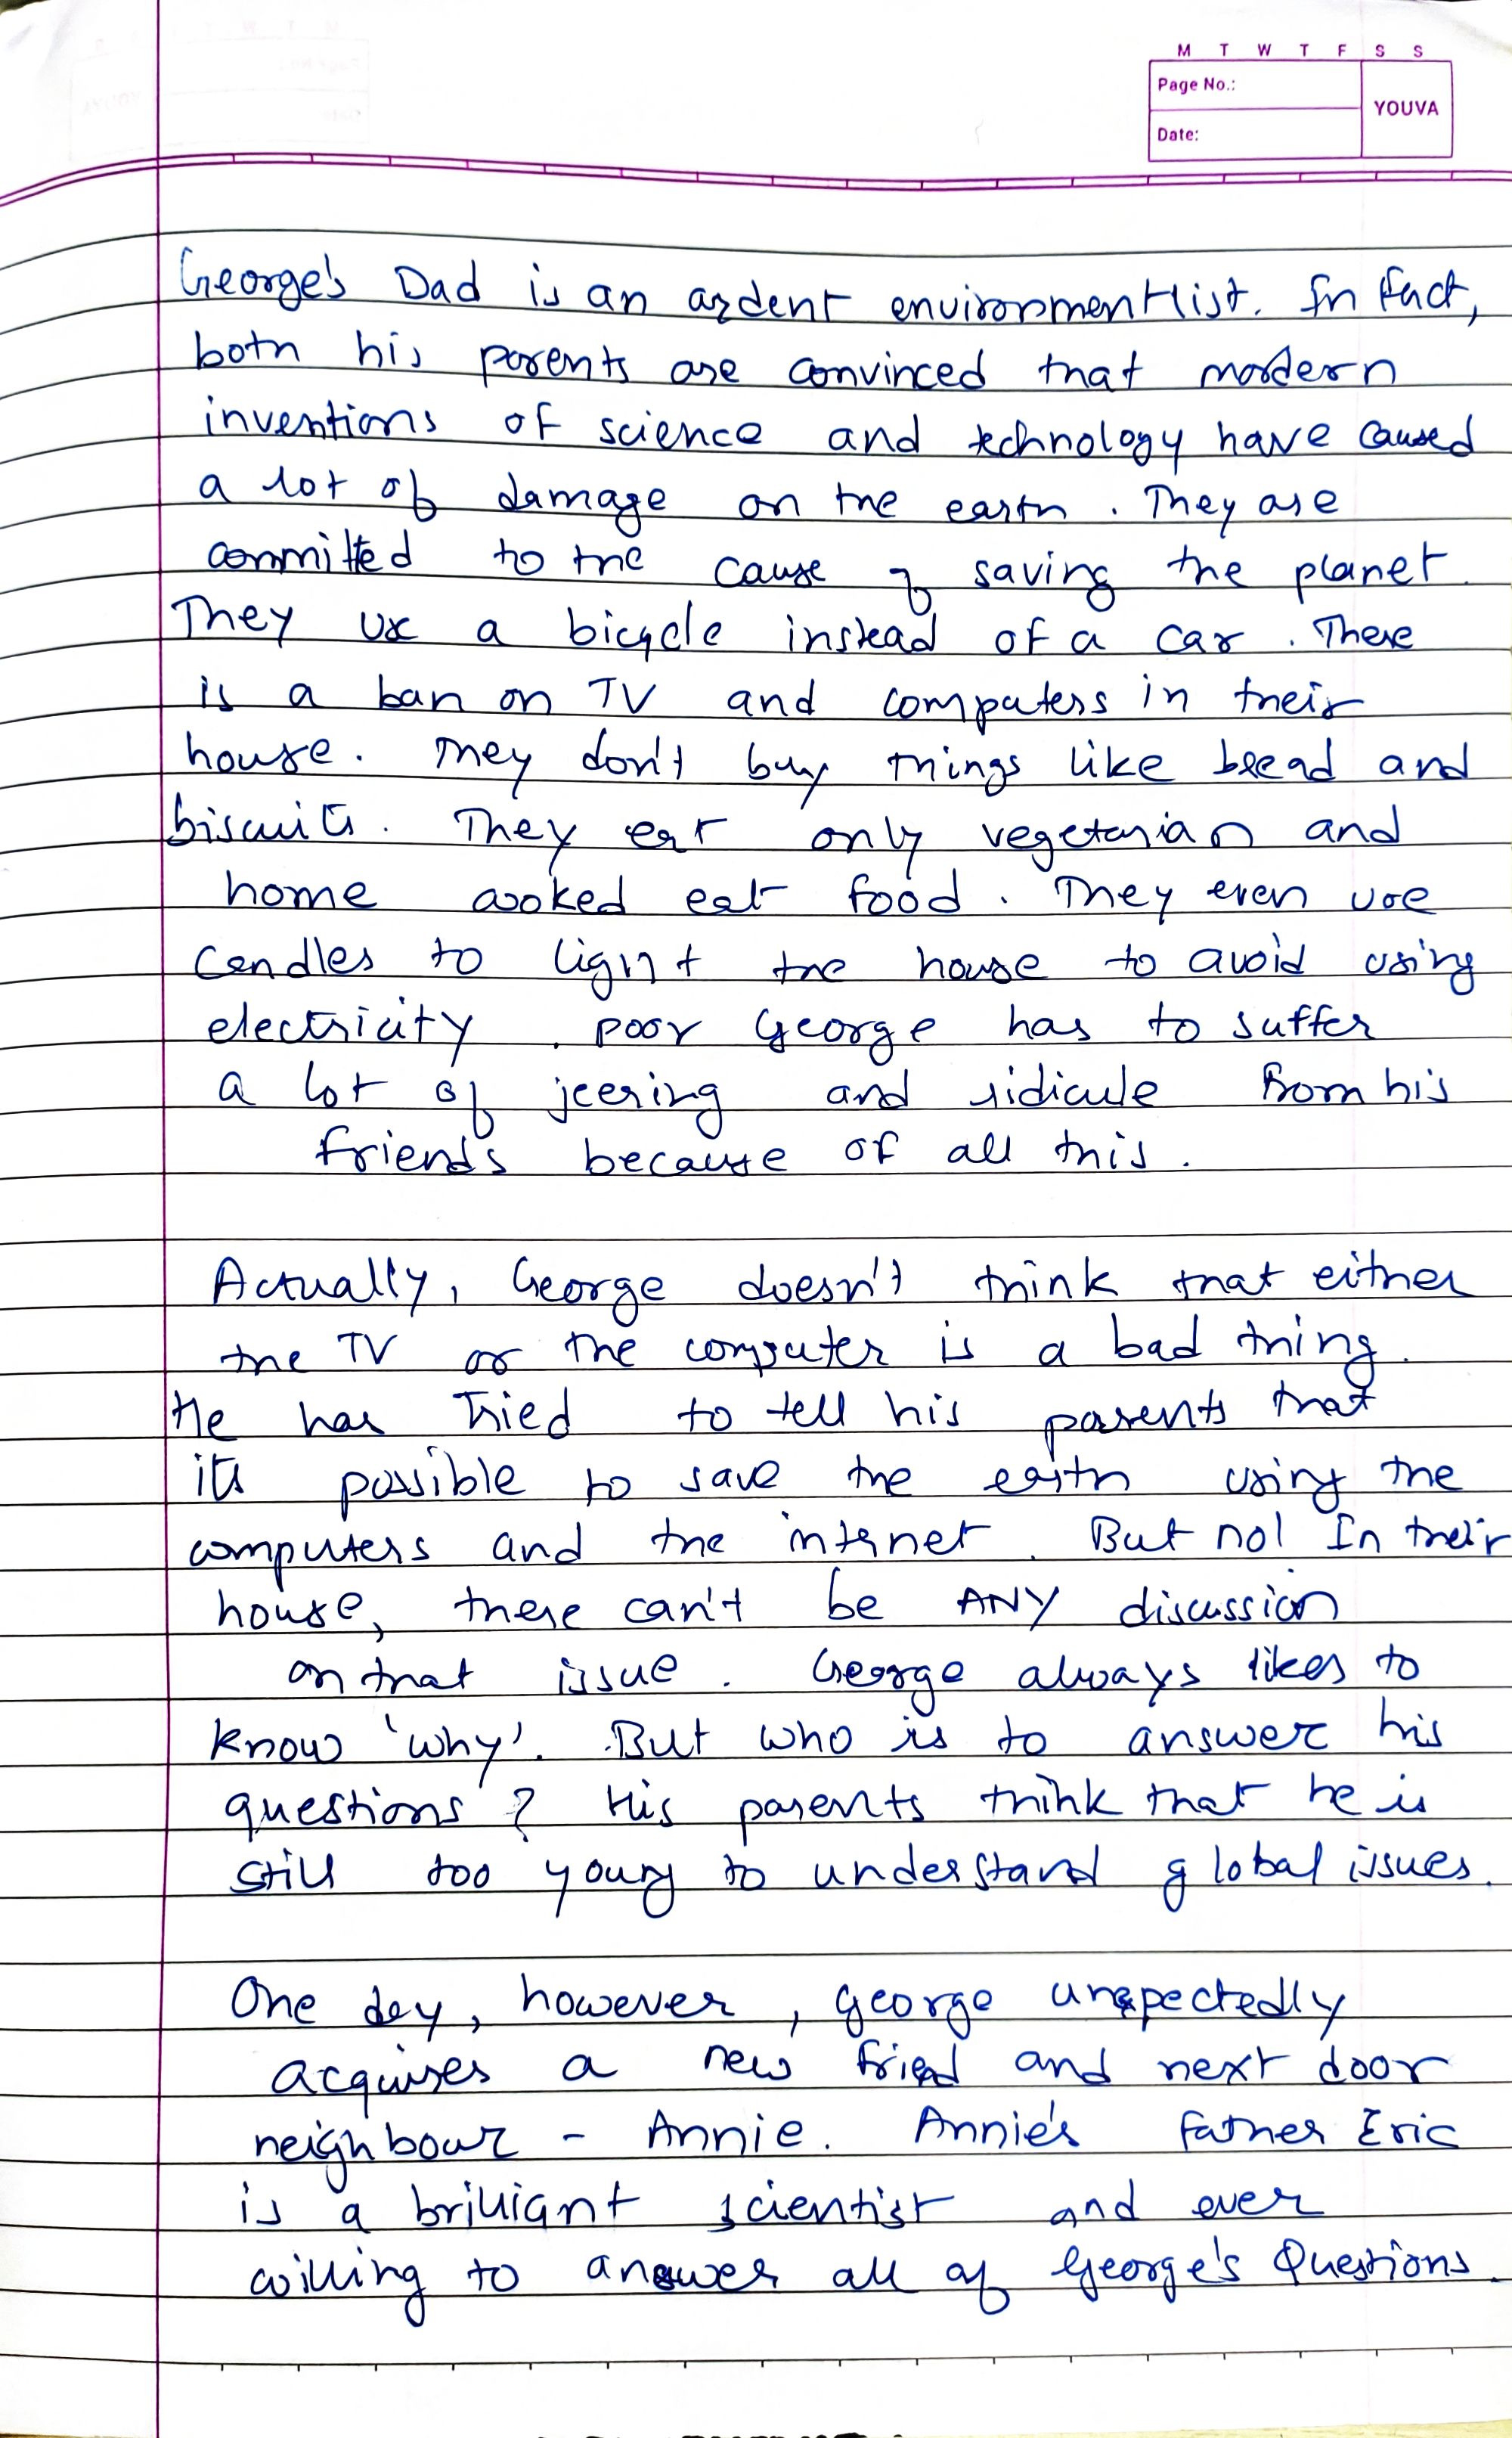 M T W T F S S
Page No.:
YOUVA
Date:
George's Dad is an ardent environmentlist. In fact,
both his parents are convinced that modern
inventions of science and technology have caused
a lot of damage on the earth. They are
committed to the cause of saving the planet.
They use a bicycle instead of a car. There
is a ban on TV and computers in their
house. They don't buy things like bread and
biscuits. They eat only vegetarian and
home cooked eat food. They even use
candles to light the house to avoid using
electricity. poor George has to suffer
a lot of jeering and ridicule from his
friends because of all this.
Actually, George doesn't think that either
the TV or the computer is a bad thing.
He has tried to tell his parents that
its possible to save the earth using the
computers and the internet. But no! In their
house, there can't be ANY discussion
on that issue. George always likes to
know 'why'. But who is to answer his
questions? His parents think that he is
still too young to understand global issues.
One day, however, george unexpectedly
acquires a new friend and next door
neighbour - Annie. Annie's father Eric
is a brilliant scientist and ever
willing to answer all of George's Questions.